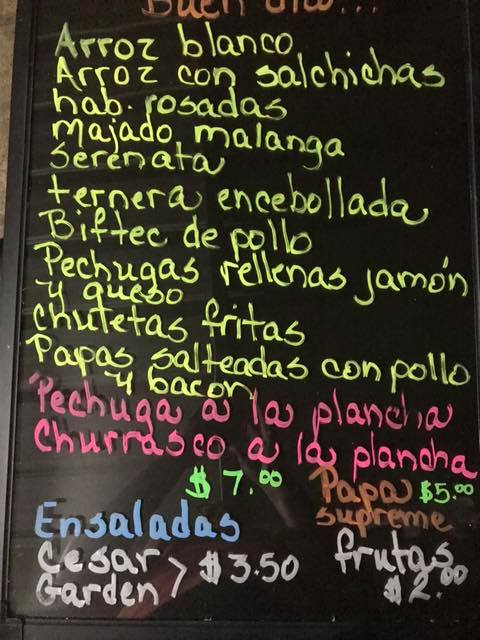 Buen día...
Arroz blanco
Arroz con salchichas
hab. rosadas
majado malanga
serenata
ternera encebollada
Biftec de pollo
Pechugas rellenas jamón
y queso
chuletas fritas
Papas salteadas con pollo
y bacon
Pechuga a la plancha
Churrasco a la plancha
$7.00 Papa $5.00
supreme
Ensaladas
Cesar
Garden > $3.50
frutas
$2.00